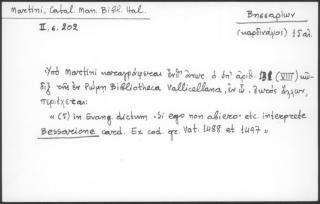 Martini, Catal. Man. Bibl. Ital.
II, σ. 202
Βησσαρίων
(καρδινάλιος) 15 αἰ.
Ὑπὸ Martini καταγράφεται ὑπ' ἀριθ. (VIII) κῶ-
διξ τῆς ἐν Ρώμῃ Βιβliotheca Vallicellana, ἐν ᾧ, ἐκτὸς ἄλλων,
περιέχεται:
« (5) in Evang. dictum · Si ego non abiero · etc. interprete
Bessarione card. Ex cod. gr. Vat. 1488 et 1497 »